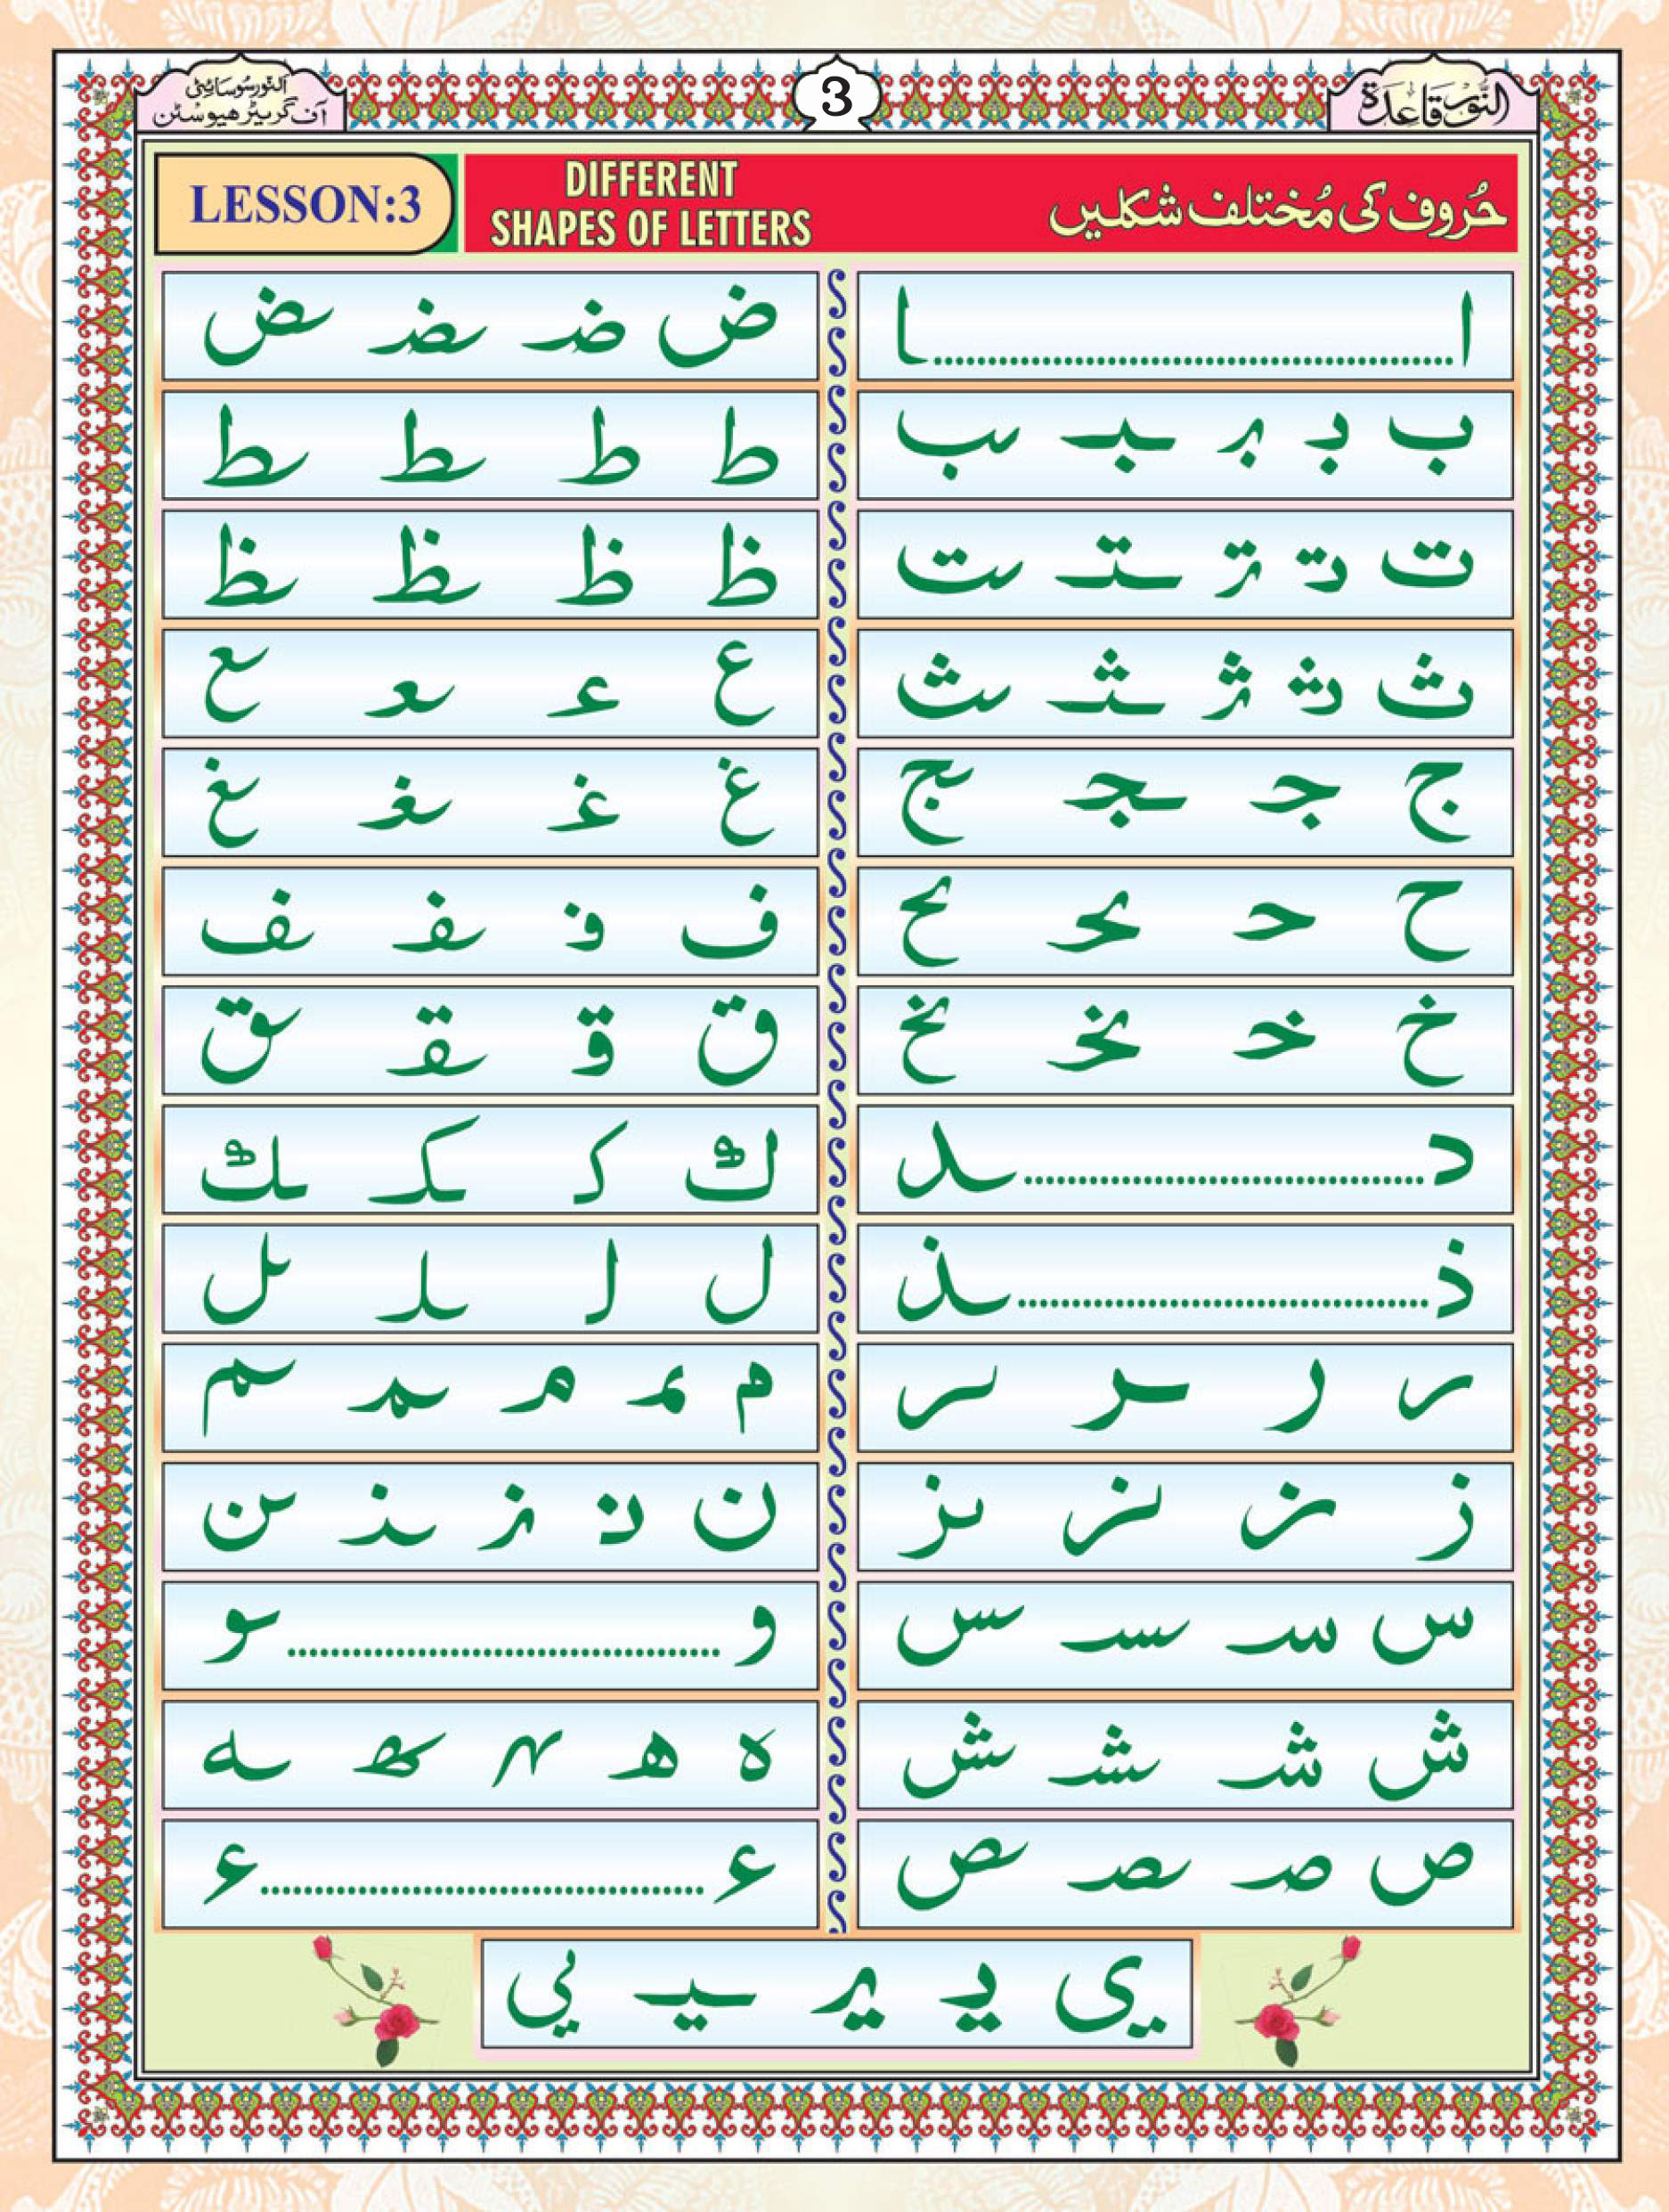 النُّور قَاعِدَة
3
اَلنُّور سُوسَائِٹی
آف گریٹر ھیوسٹن
LESSON:3
DIFFERENT
SHAPES OF LETTERS
حُروف کی مُختلف شکلیں
ا ........ ـا
ب بـ بـ ـبـ ـب
ت تـ تـ ـتـ ـت
ث ثـ ثـ ـثـ ـث
ج جـ ـجـ ـج
ح حـ ـحـ ـح
خ خـ ـخـ ـخ
د ........ ـد
ذ ........ ـذ
ر ر ـر ـر
ز ـز ـز ـز
س سـ ـسـ ـس
ش شـ ـشـ ـش
ص صـ ـصـ ـص
ض ضـ ـضـ ـض
ط ط ـط ـط
ظ ظ ـظ ـظ
ع عـ ـعـ ـع
غ غـ ـغـ ـغ
ف فـ ـفـ ـف
ق قـ ـقـ ـق
ك كـ ـكـ ـك
ل لـ ـلـ ـل
م مـ مـ ـمـ ـم
ن نـ نـ ـنـ ـن
و ........ ـو
ہ ھـ ـہـ ـھـ ـہ
ء ........ ء
ي يـ يـ ـيـ ـي